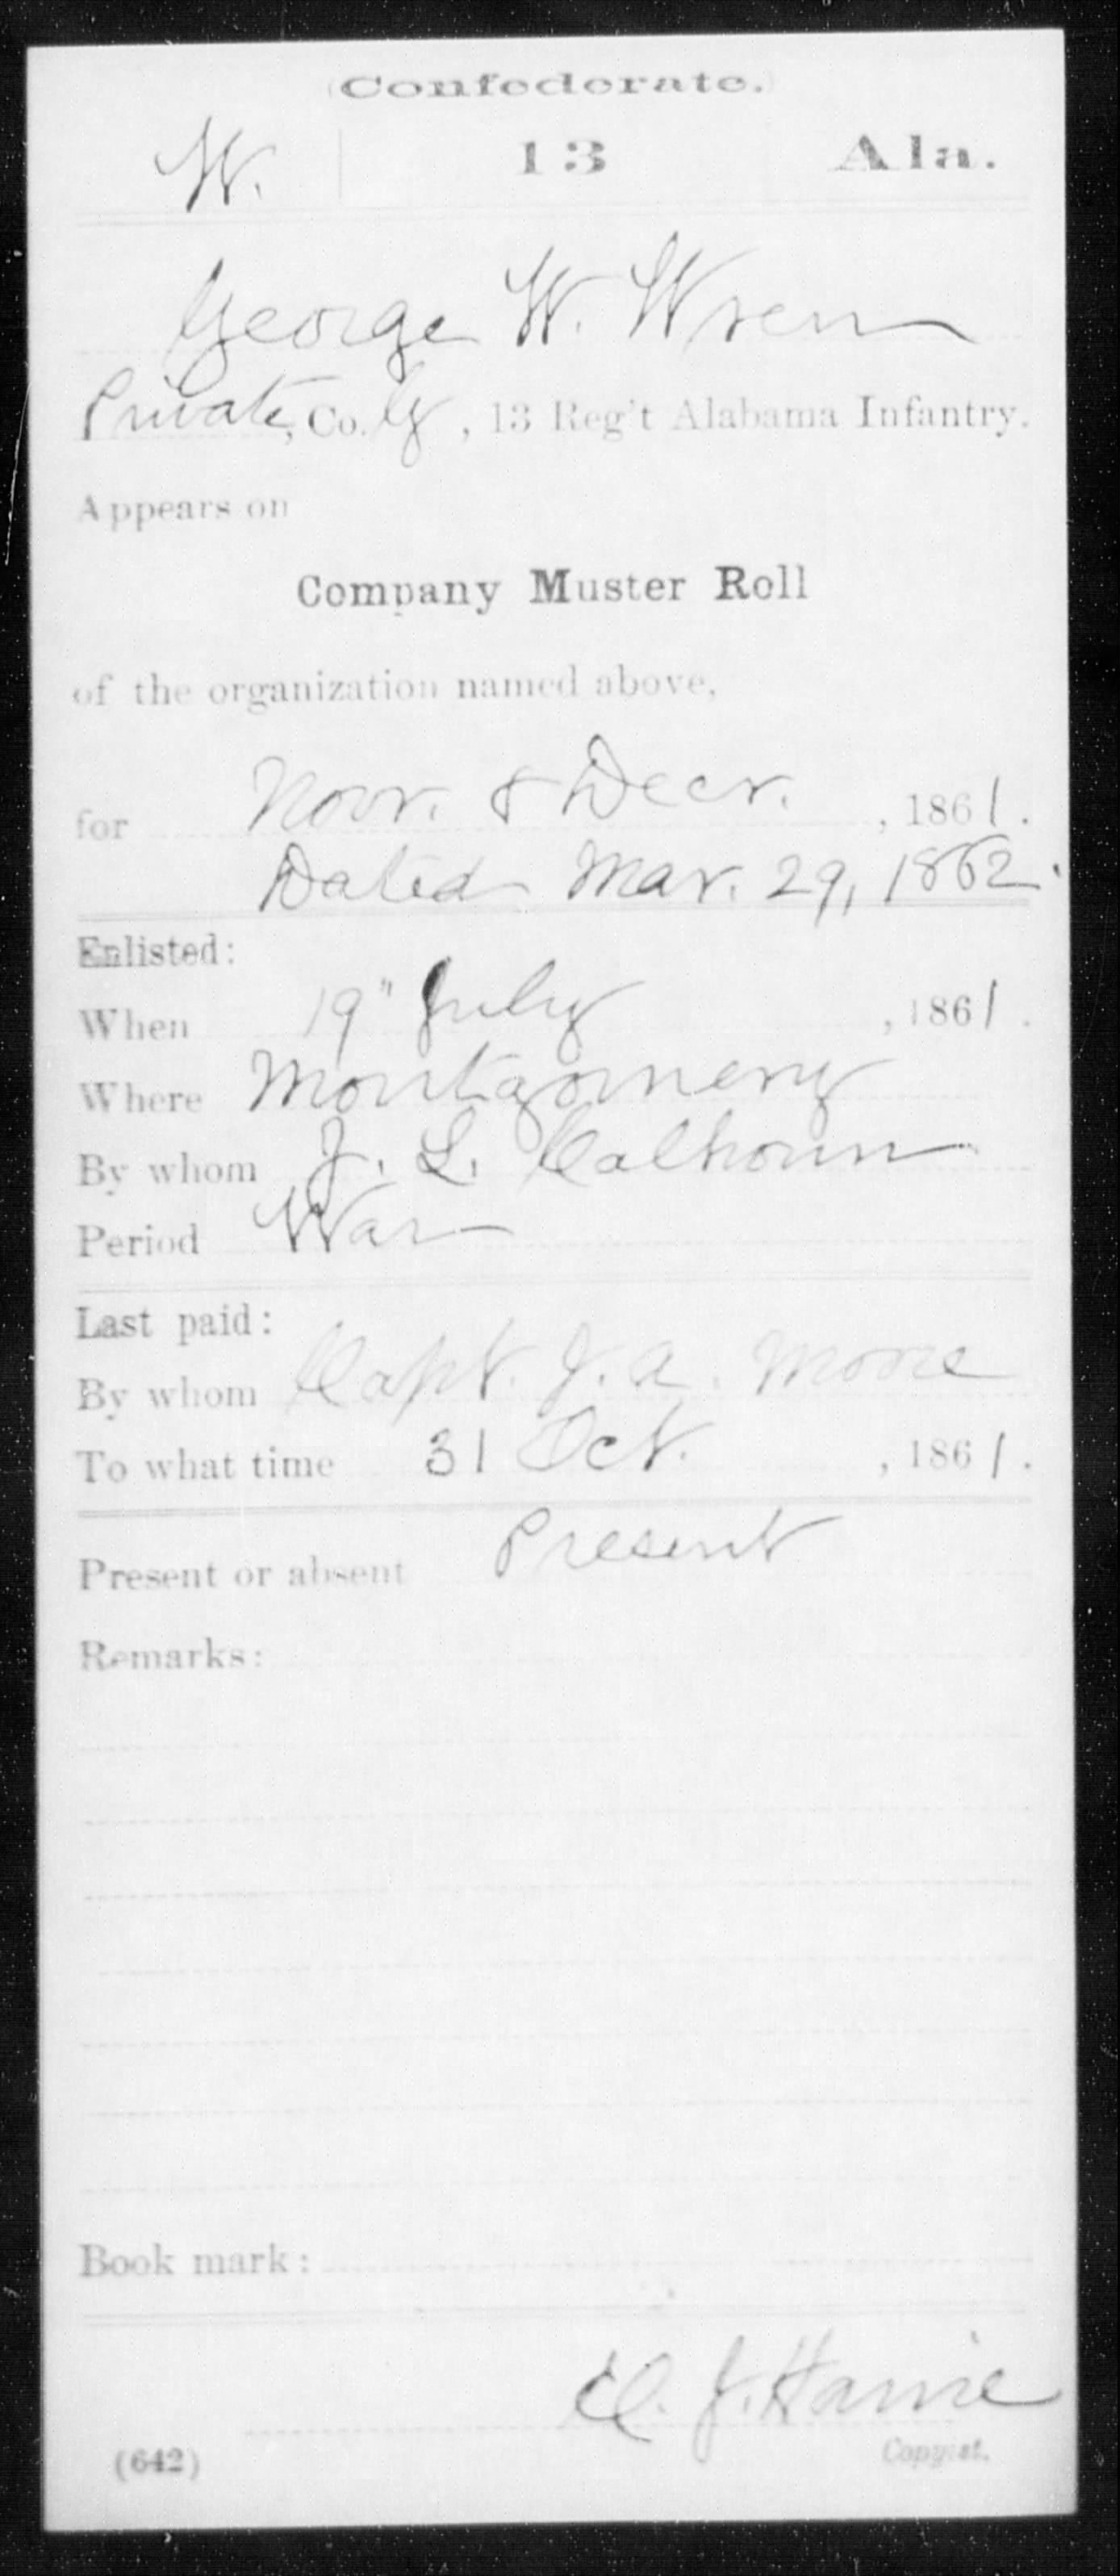 (Confederate.)
W. 13 Ala.
George W. Wren
Private, Co. G, 13 Reg't Alabama Infantry.
Appears on
Company Muster Roll
of the organization named above,
for Novr. & Decr., 1861.
Dated Mar. 29, 1862.
Enlisted:
When 19" July, 1861.
Where Montgomery
By whom J. L. Calhoun
Period War
Last paid:
By whom Capt. J. A. Moore
To what time 31 Oct., 1861.
Present or absent Present
Remarks:
Book mark:
J. Harrie
(642) Copyist.